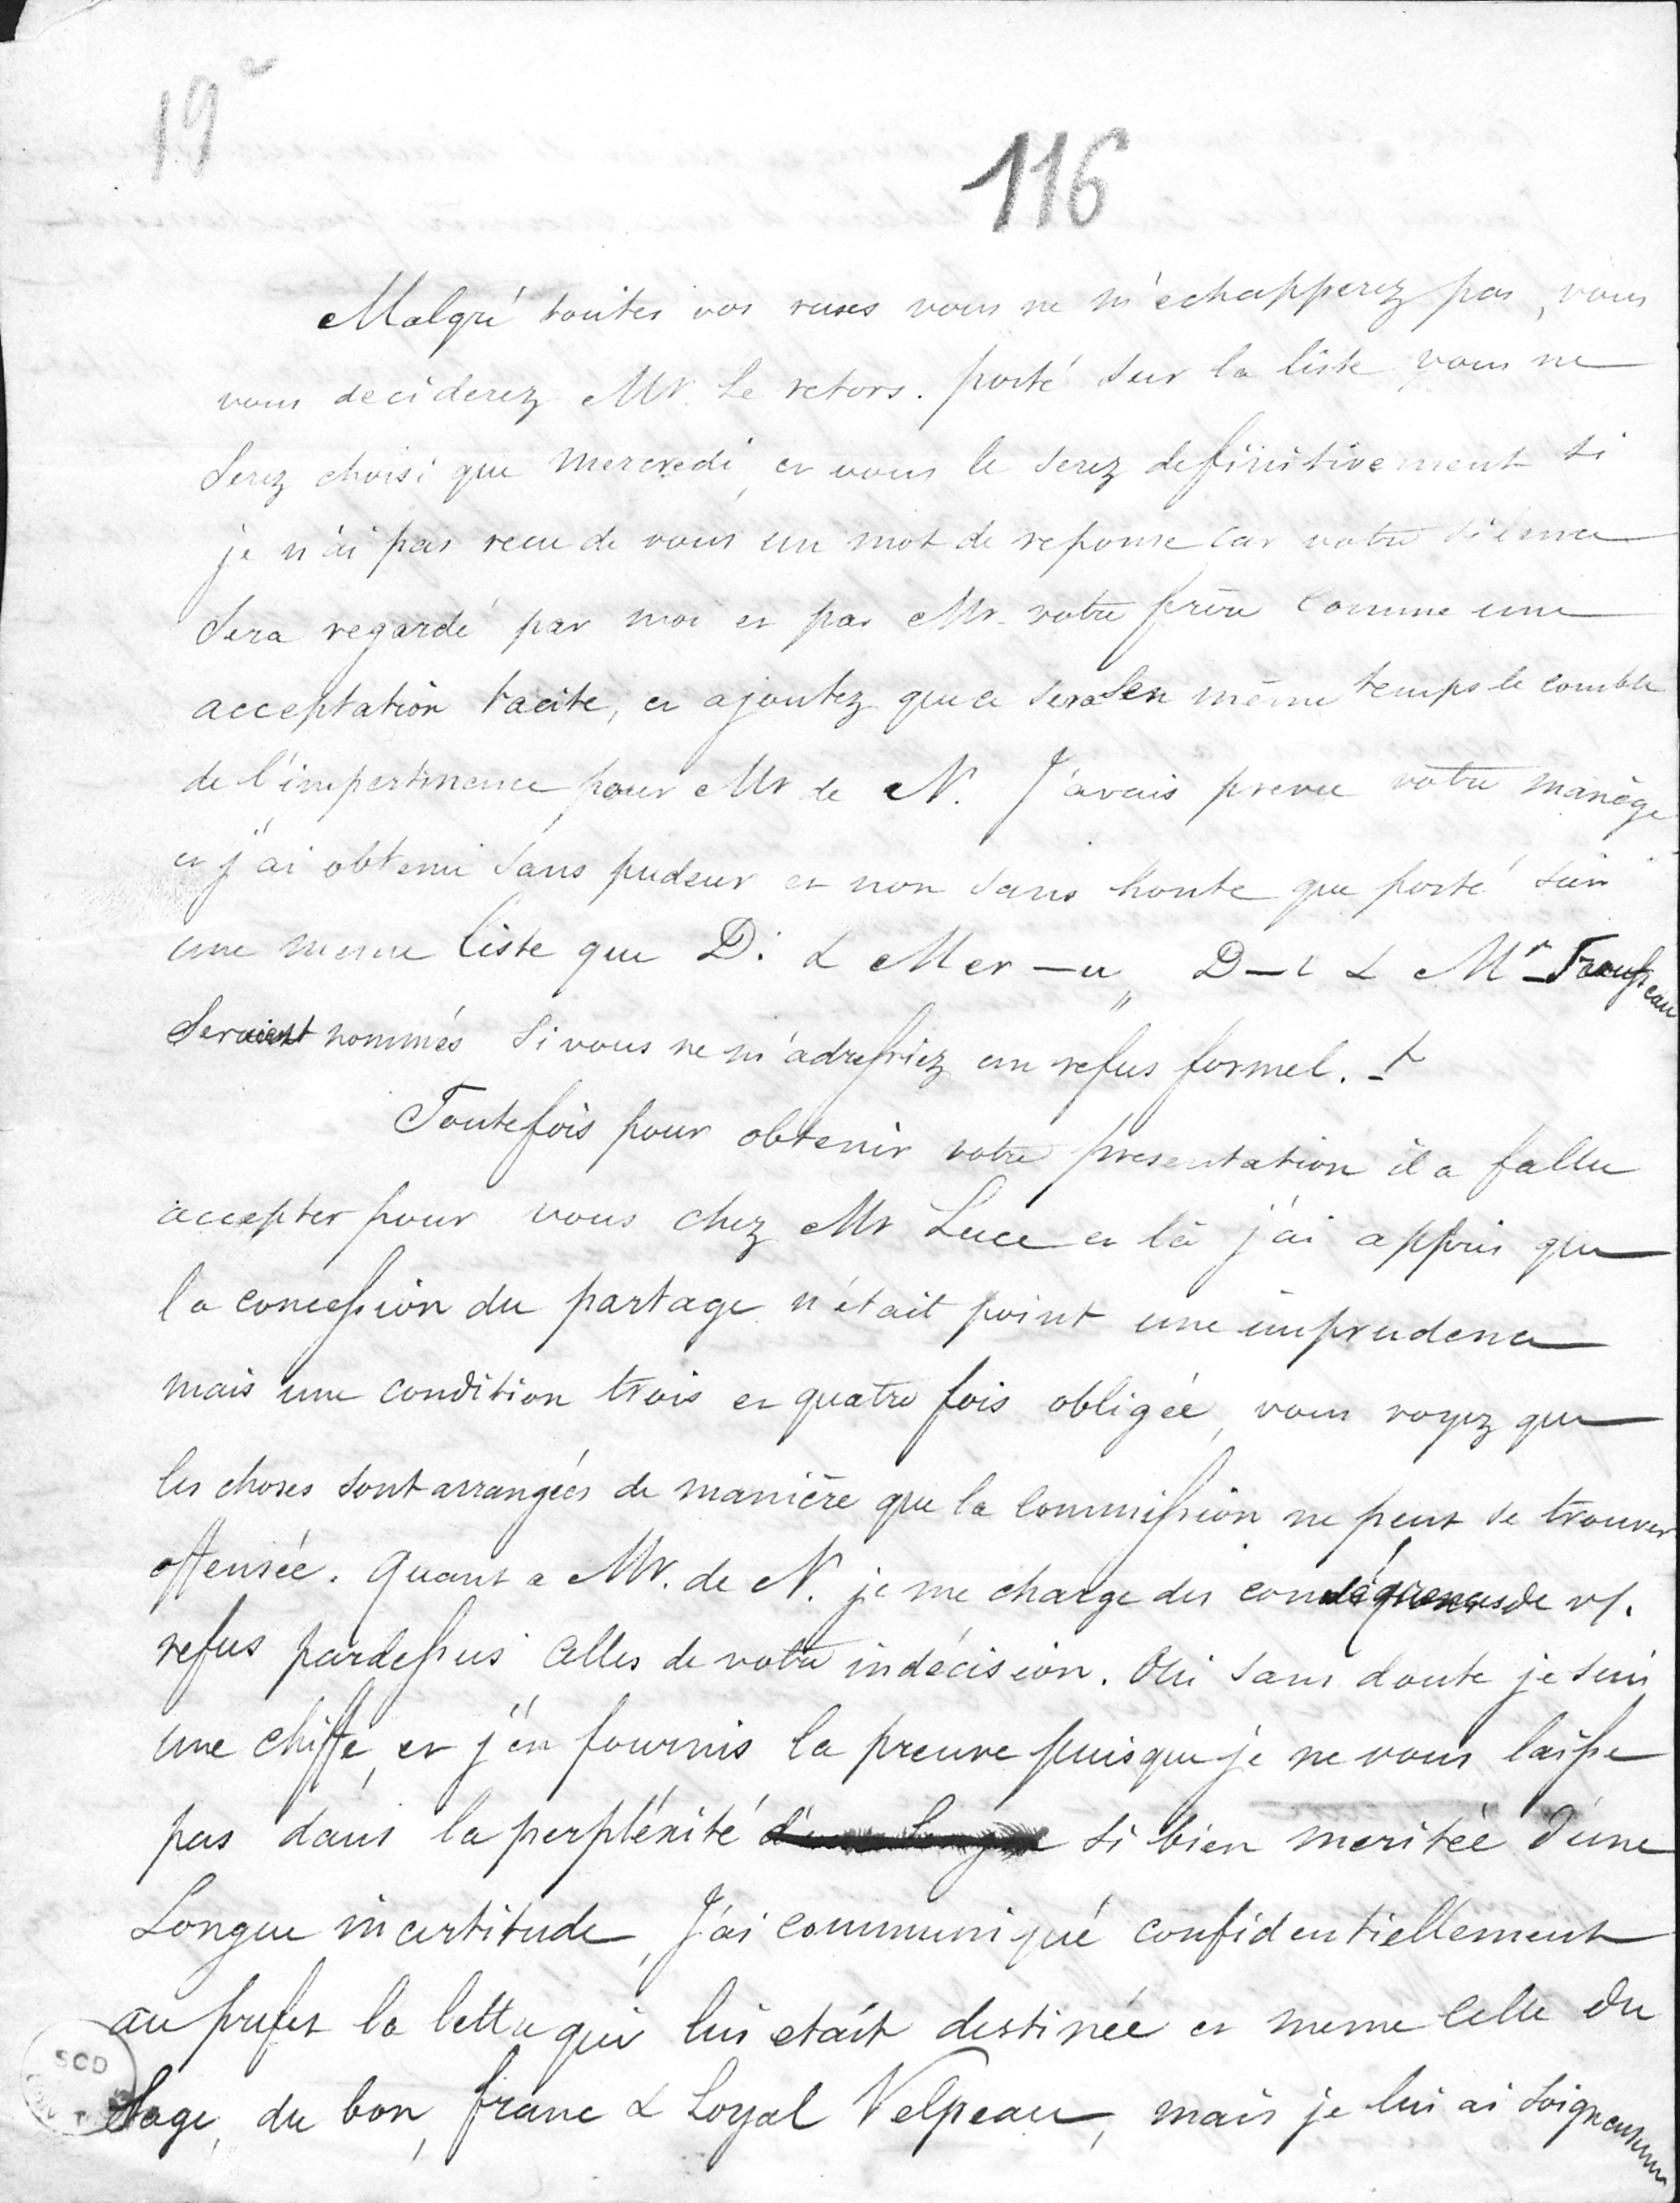 19e
116
Malgré toutes vos ruses vous ne m'echapperez pas, vous
vous deciderez Mr. Le retors. porté sur la liste vous ne
Serez choisi que mercredi, et vous le serez definitivement si
je n'ai pas recu de vous un mot de reponse car votre silence
Sera regardé par moi et par Mr. votre frère comme une
acceptation tacite, et ajoutez que ce sera en même temps le comble
de l'impertinence pour Mr de N. J'avais prevu votre manège
et j'ai obtenu sans pudeur et non sans honte que porté sur
une meme liste que D. & Mer—u, D—l & Mr Trousseau
Seraient nommés si vous ne m'adressiez un refus formel.
Toutefois pour obtenir votre presentation il a fallu
accepter pour vous chez Mr Luce et là j'ai appris que
la concession du partage n'était point une imprudence
mais une condition trois et quatre fois obligée, vous voyez que
les choses sont arrangées de manière que la commission ne peut se trouver
offensée. Quant a Mr. de N. je me charge des conséquences de vf.
refus pardessus celles de votre indécision. Oui sans doute je suis
une chiffe, et j'en fournis la preuve puisque je ne vous laisse
pas dans la perpléxité si bien meritée d'une
Longue incertitude, J'ai communiqué confidentiellement
au prefet la lettre qui lui etait destinée et meme celle du
Sage, du bon, franc & Loyal Velpeau, mais je lui ai soigneusem
SCD